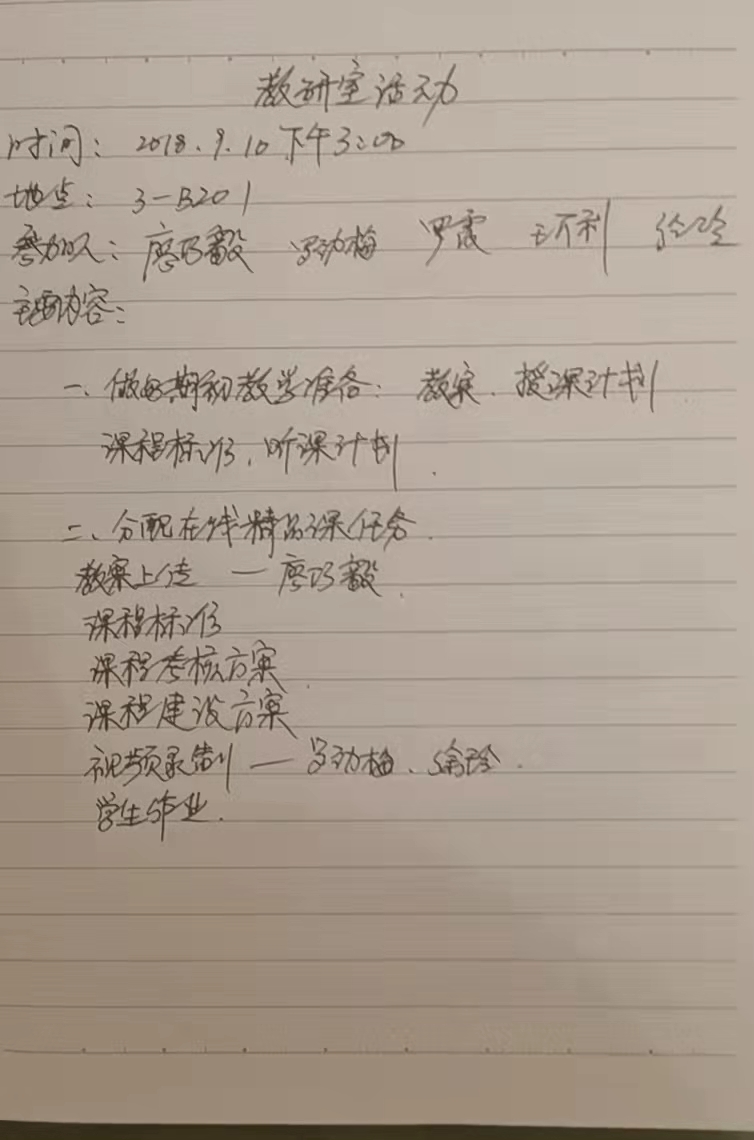 教研室活动
时间：2018.9.10下午3:00
地点：3-B201
参加人：廖巧毅 劲梅 罗霞 王不利
主要内容：
一、做好期初教学准备：教案、授课计划
课程标准、听课计划.
二、分配在线精品课任务.
教案上传 — 廖巧毅.
课程标准
课程考核方案.
课程建设方案
视频录制 — 劲梅、玲.
学生作业.